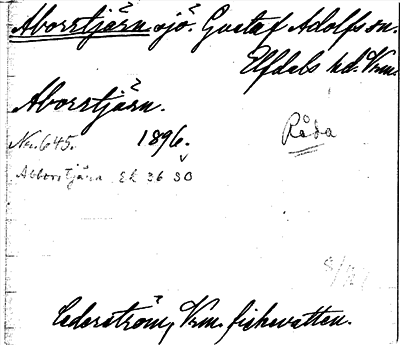 Aborrtjärn. sjö. Gustaf Adolfs sn.
Elfdals hd. Vrm.
Aborrtjärn.
No. 645. 1896.
Råda
Abborrtjärn Ek 36 SO
Cederström, Vrm. fiskevatten.